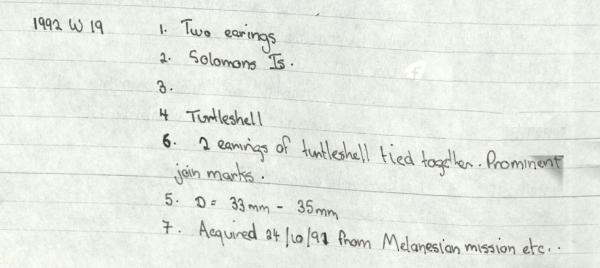 1992 W 19 1. Two earings
2. Solomons Is.
3.
4 Turtleshell
6. 2 earrings of turtleshell tied together. Prominent
join marks.
5. D = 33mm - 35mm
7. Acquired 24/10/91 from Melanesian mission etc..